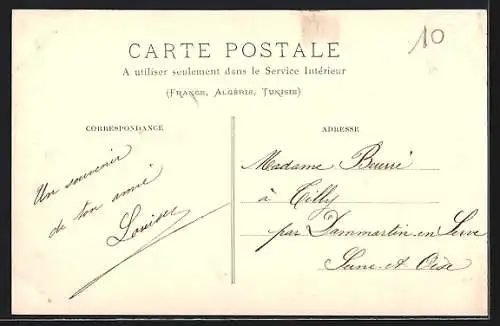 10
CARTE POSTALE
A utiliser seulement dans le Service Intérieur
(FRANCE, ALGÉRIE, TUNISIE)
CORRESPONDANCE
Un souvenir
de ton amie
Louise
ADRESSE
Madame Beurré
à Tilly
par Dammartin en Serve
Seine et Oise